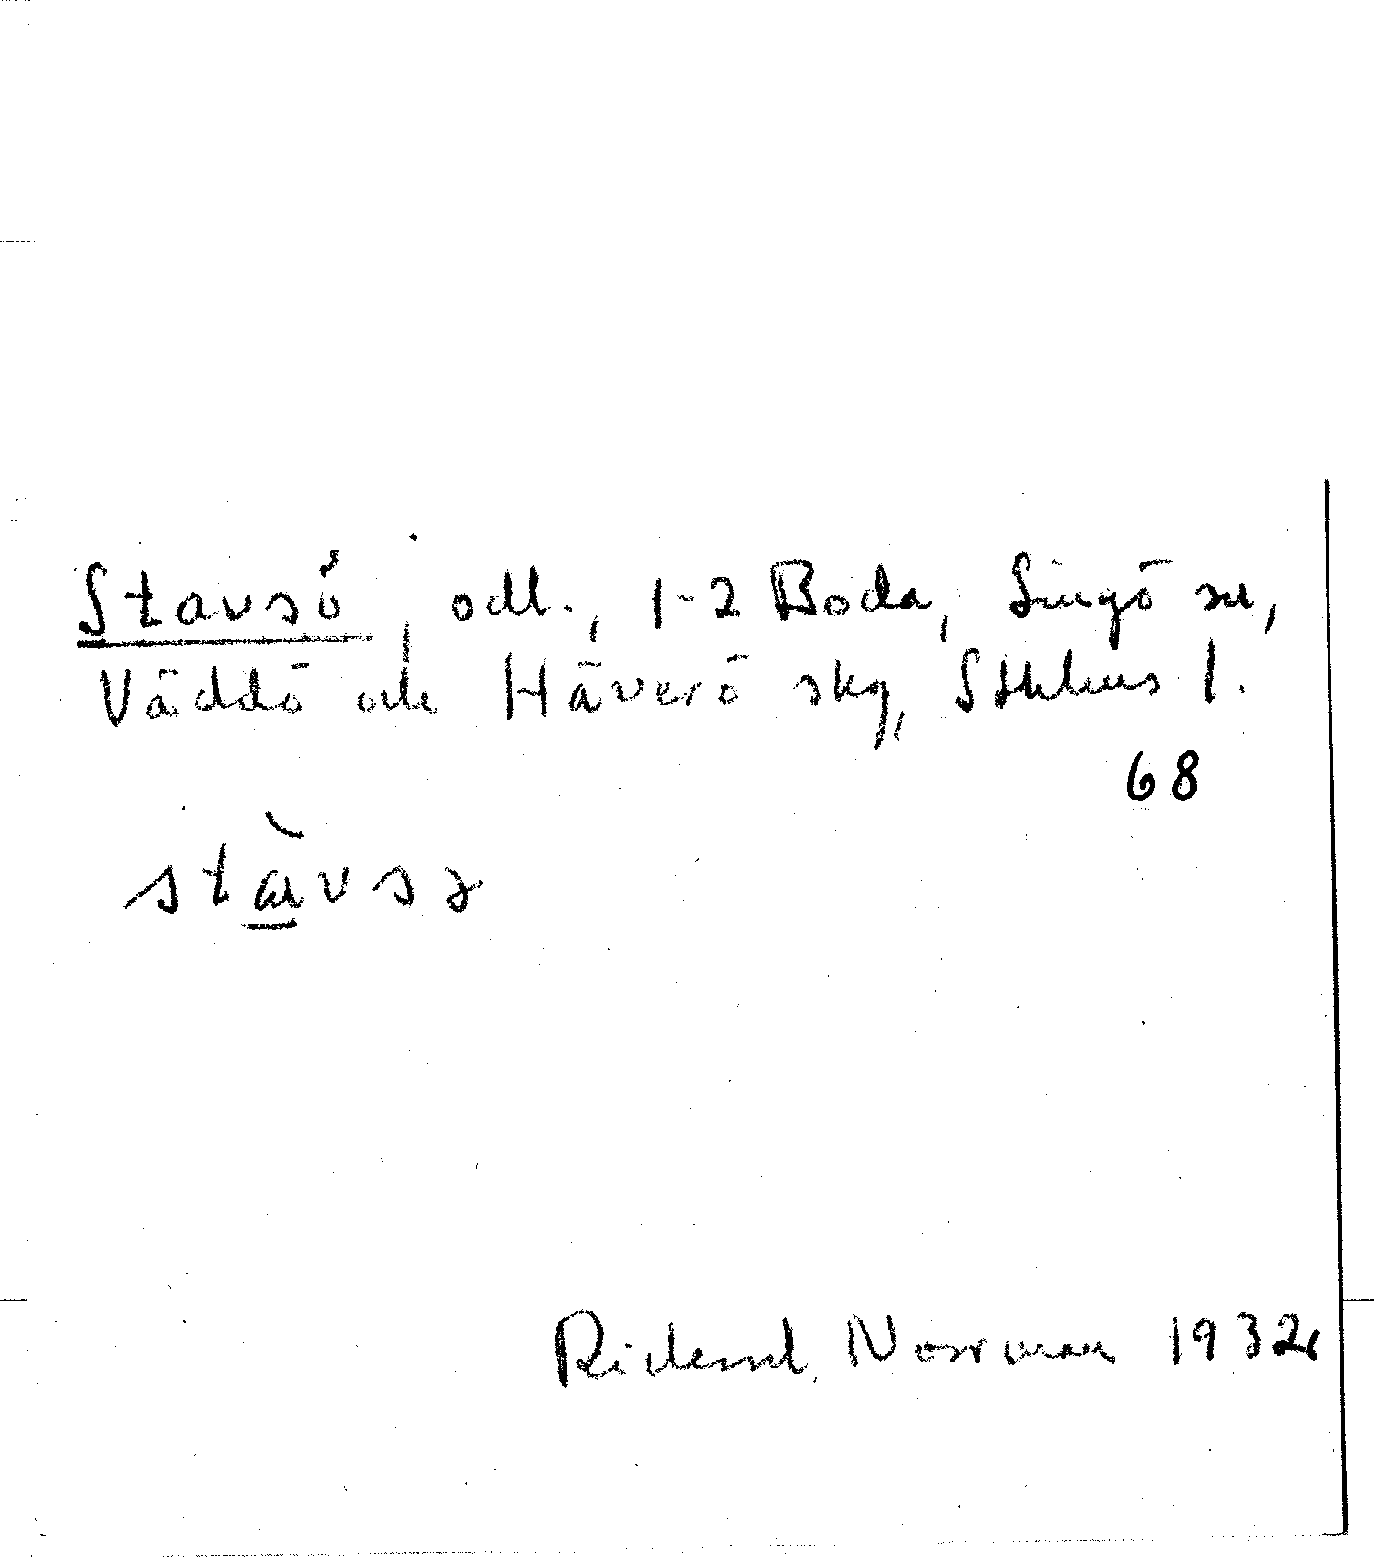 Stavsö, odl., 1-2 Boda, Singö sn,
Väddö och Häverö skg, Sthlms l.
68
stàvsɜ
Richard Norrman 1932